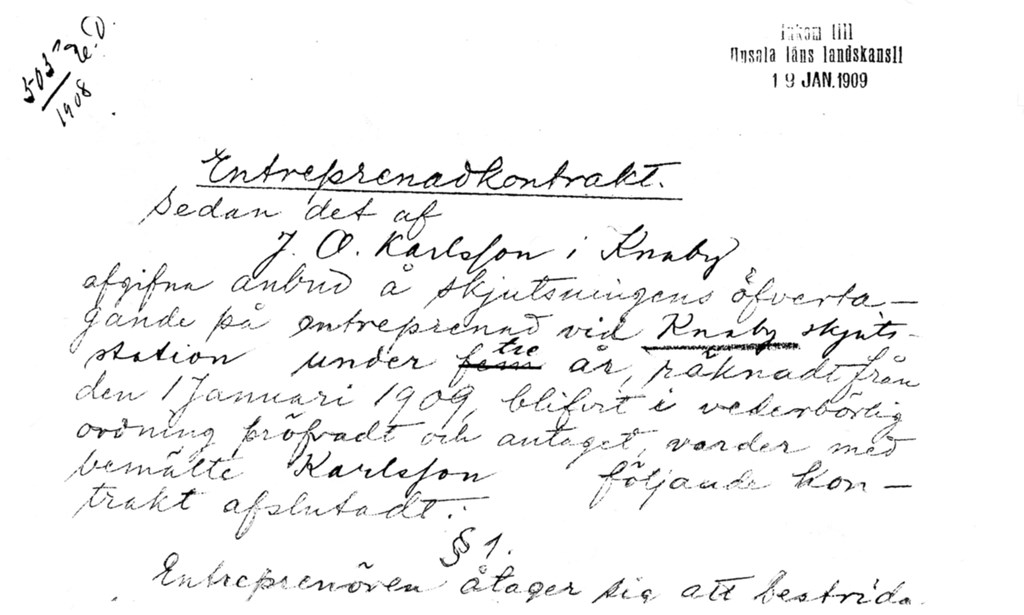 503
1908
Inkom till
Upsala läns landskansli
19 JAN. 1909
Entreprenadkontrakt.
Sedan det af
J. O. Karlsson i Knaby
afgifna anbud å skjutsningens öfverta-
gande på entreprenad vid Knaby skjuts-
station under fem tre år, räknadt från
den 1 Januari 1909, blifvit i vederbörlig
ordning pröfvadt och antaget, varder med
bemälte Karlsson följande kon-
trakt afslutadt:
§ 1.
Entreprenören åtager sig att bestrida